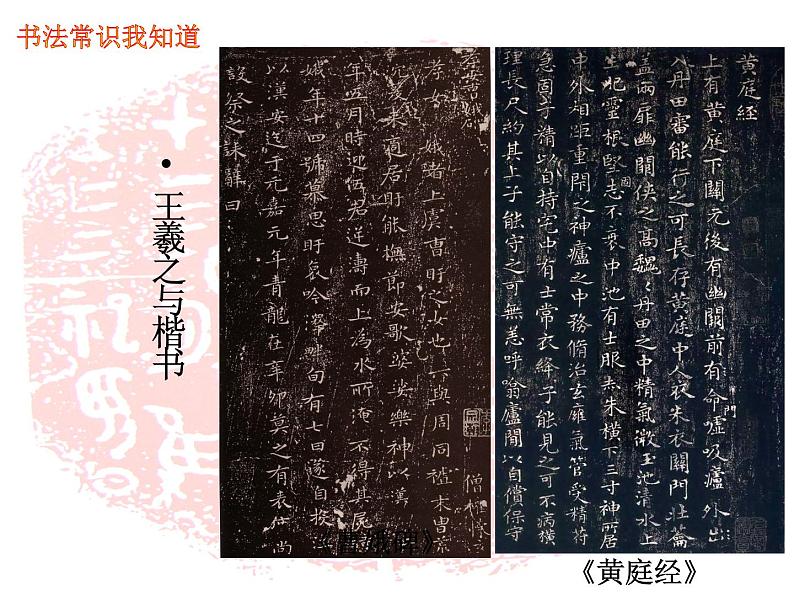 书法常识我知道
• 王羲之与楷书
孝女曹娥碑
孝女曹娥者上虞曹盱之女也其先與周同祖末胄荒
沉爰來適居盱能撫節安歌婆娑樂神以漢
安二年五月時迎伍君逆濤而上為水所淹不得其屍
娥年十四號慕思盱哀吟澤畔旬有七日遂自投江
以漢安迄于元嘉元年青龍在辛卯莫之有表度尚
設祭之誄辭曰
僧權
《曹娥碑》
黃庭經
上有黃庭下關元後有幽闕前有命門噓吸廬外出
入丹田審能行之可長存黃庭中人衣朱衣關門壯蘥
蓋兩扉幽闕俠之高魏魏丹田之中精氣微玉池清水上
生肥靈根堅志不衰中池有士服赤朱橫下三寸神所居
中外相距重閇之神廬之中務脩治玄廱氣管受精符
急固子精以自持宅中有士常衣絳子能見之可不病橫
理長尺約其上子能守之可無恙呼噏廬間以自償保守
《黄庭经》